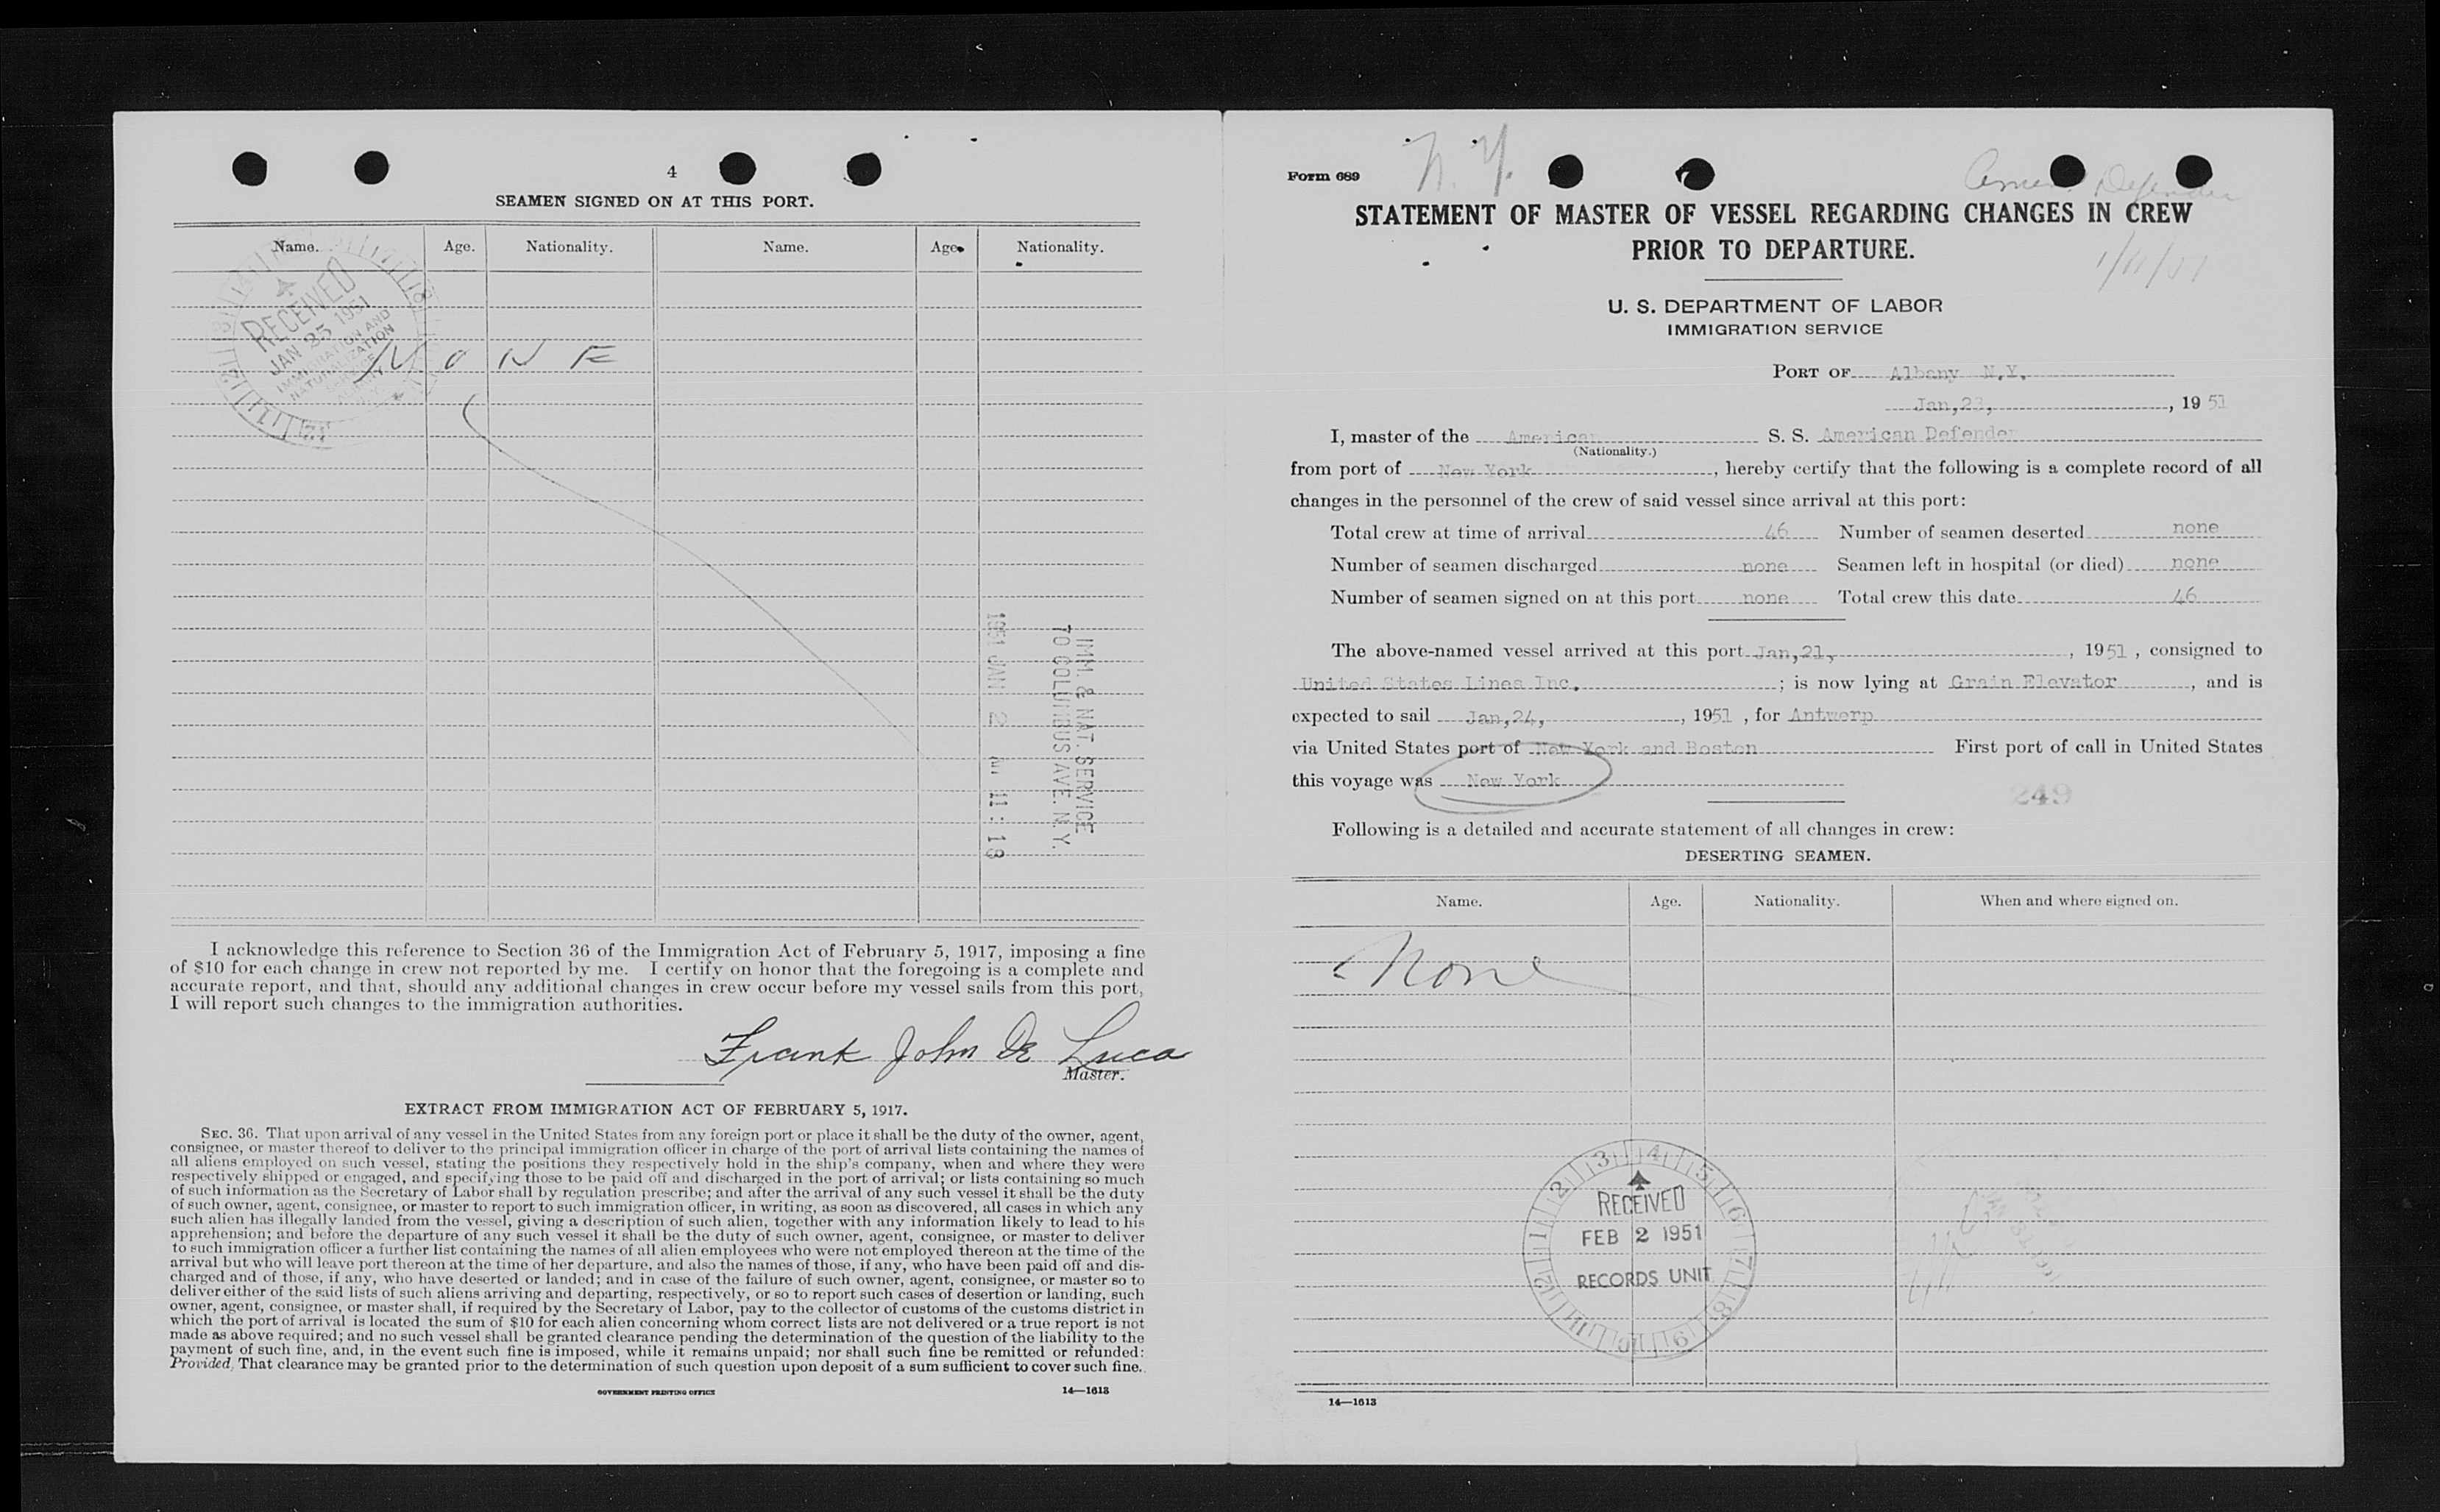 4
SEAMEN SIGNED ON AT THIS PORT.
Name. Age. Nationality. Name. Age. Nationality.
RECEIVED
JAN 23 1951
IMMIGRATION AND
NATURALIZATION
SERVICE
NONE
1951 JAN 2 11:18
IMM. & NAT. SERVICE
70 COLUMBUS AVE. N.Y.
I acknowledge this reference to Section 36 of the Immigration Act of February 5, 1917, imposing a fine
of $10 for each change in crew not reported by me. I certify on honor that the foregoing is a complete and
accurate report, and that, should any additional changes in crew occur before my vessel sails from this port,
I will report such changes to the immigration authorities.
Frank John De Luca
Master.
EXTRACT FROM IMMIGRATION ACT OF FEBRUARY 5, 1917.
SEC. 36. That upon arrival of any vessel in the United States from any foreign port or place it shall be the duty of the owner, agent,
consignee, or master thereof to deliver to the principal immigration officer in charge of the port of arrival lists containing the names of
all aliens employed on such vessel, stating the positions they respectively hold in the ship's company, when and where they were
respectively shipped or engaged, and specifying those to be paid off and discharged in the port of arrival; or lists containing so much
of such information as the Secretary of Labor shall by regulation prescribe; and after the arrival of any such vessel it shall be the duty
of such owner, agent, consignee, or master to report to such immigration officer, in writing, as soon as discovered, all cases in which any
such alien has illegally landed from the vessel, giving a description of such alien, together with any information likely to lead to his
apprehension; and before the departure of any such vessel it shall be the duty of such owner, agent, consignee, or master to deliver
to such immigration officer a further list containing the names of all alien employees who were not employed thereon at the time of the
arrival but who will leave port thereon at the time of her departure, and also the names of those, if any, who have been paid off and dis-
charged and of those, if any, who have deserted or landed; and in case of the failure of such owner, agent, consignee, or master so to
deliver either of the said lists of such aliens arriving and departing, respectively, or so to report such cases of desertion or landing, such
owner, agent, consignee, or master shall, if required by the Secretary of Labor, pay to the collector of customs of the customs district in
which the port of arrival is located the sum of $10 for each alien concerning whom correct lists are not delivered or a true report is not
made as above required; and no such vessel shall be granted clearance pending the determination of the question of the liability to the
payment of such fine, and, in the event such fine is imposed, while it remains unpaid; nor shall such fine be remitted or refunded:
Provided, That clearance may be granted prior to the determination of such question upon deposit of a sum sufficient to cover such fine.
GOVERNMENT PRINTING OFFICE 14—1613
Form 689 N.Y. Amer. Defender
STATEMENT OF MASTER OF VESSEL REGARDING CHANGES IN CREW
PRIOR TO DEPARTURE.
U. S. DEPARTMENT OF LABOR
IMMIGRATION SERVICE
PORT OF Albany N.Y.
Jan,23, , 19 51
I, master of the American S. S. American Defender
(Nationality.)
from port of New York , hereby certify that the following is a complete record of all
changes in the personnel of the crew of said vessel since arrival at this port:
Total crew at time of arrival 46 Number of seamen deserted none
Number of seamen discharged none Seamen left in hospital (or died) none
Number of seamen signed on at this port none Total crew this date 46
The above-named vessel arrived at this port Jan,21, , 1951 , consigned to
United States Lines Inc. ; is now lying at Grain Elevator , and is
expected to sail Jan,24, , 1951 , for Antwerp
via United States port of New York and Boston First port of call in United States
this voyage was New York
249
Following is a detailed and accurate statement of all changes in crew:
DESERTING SEAMEN.
Name. Age. Nationality. When and where signed on.
None
RECEIVED
FEB 2 1951
RECORDS UNIT
14—1613